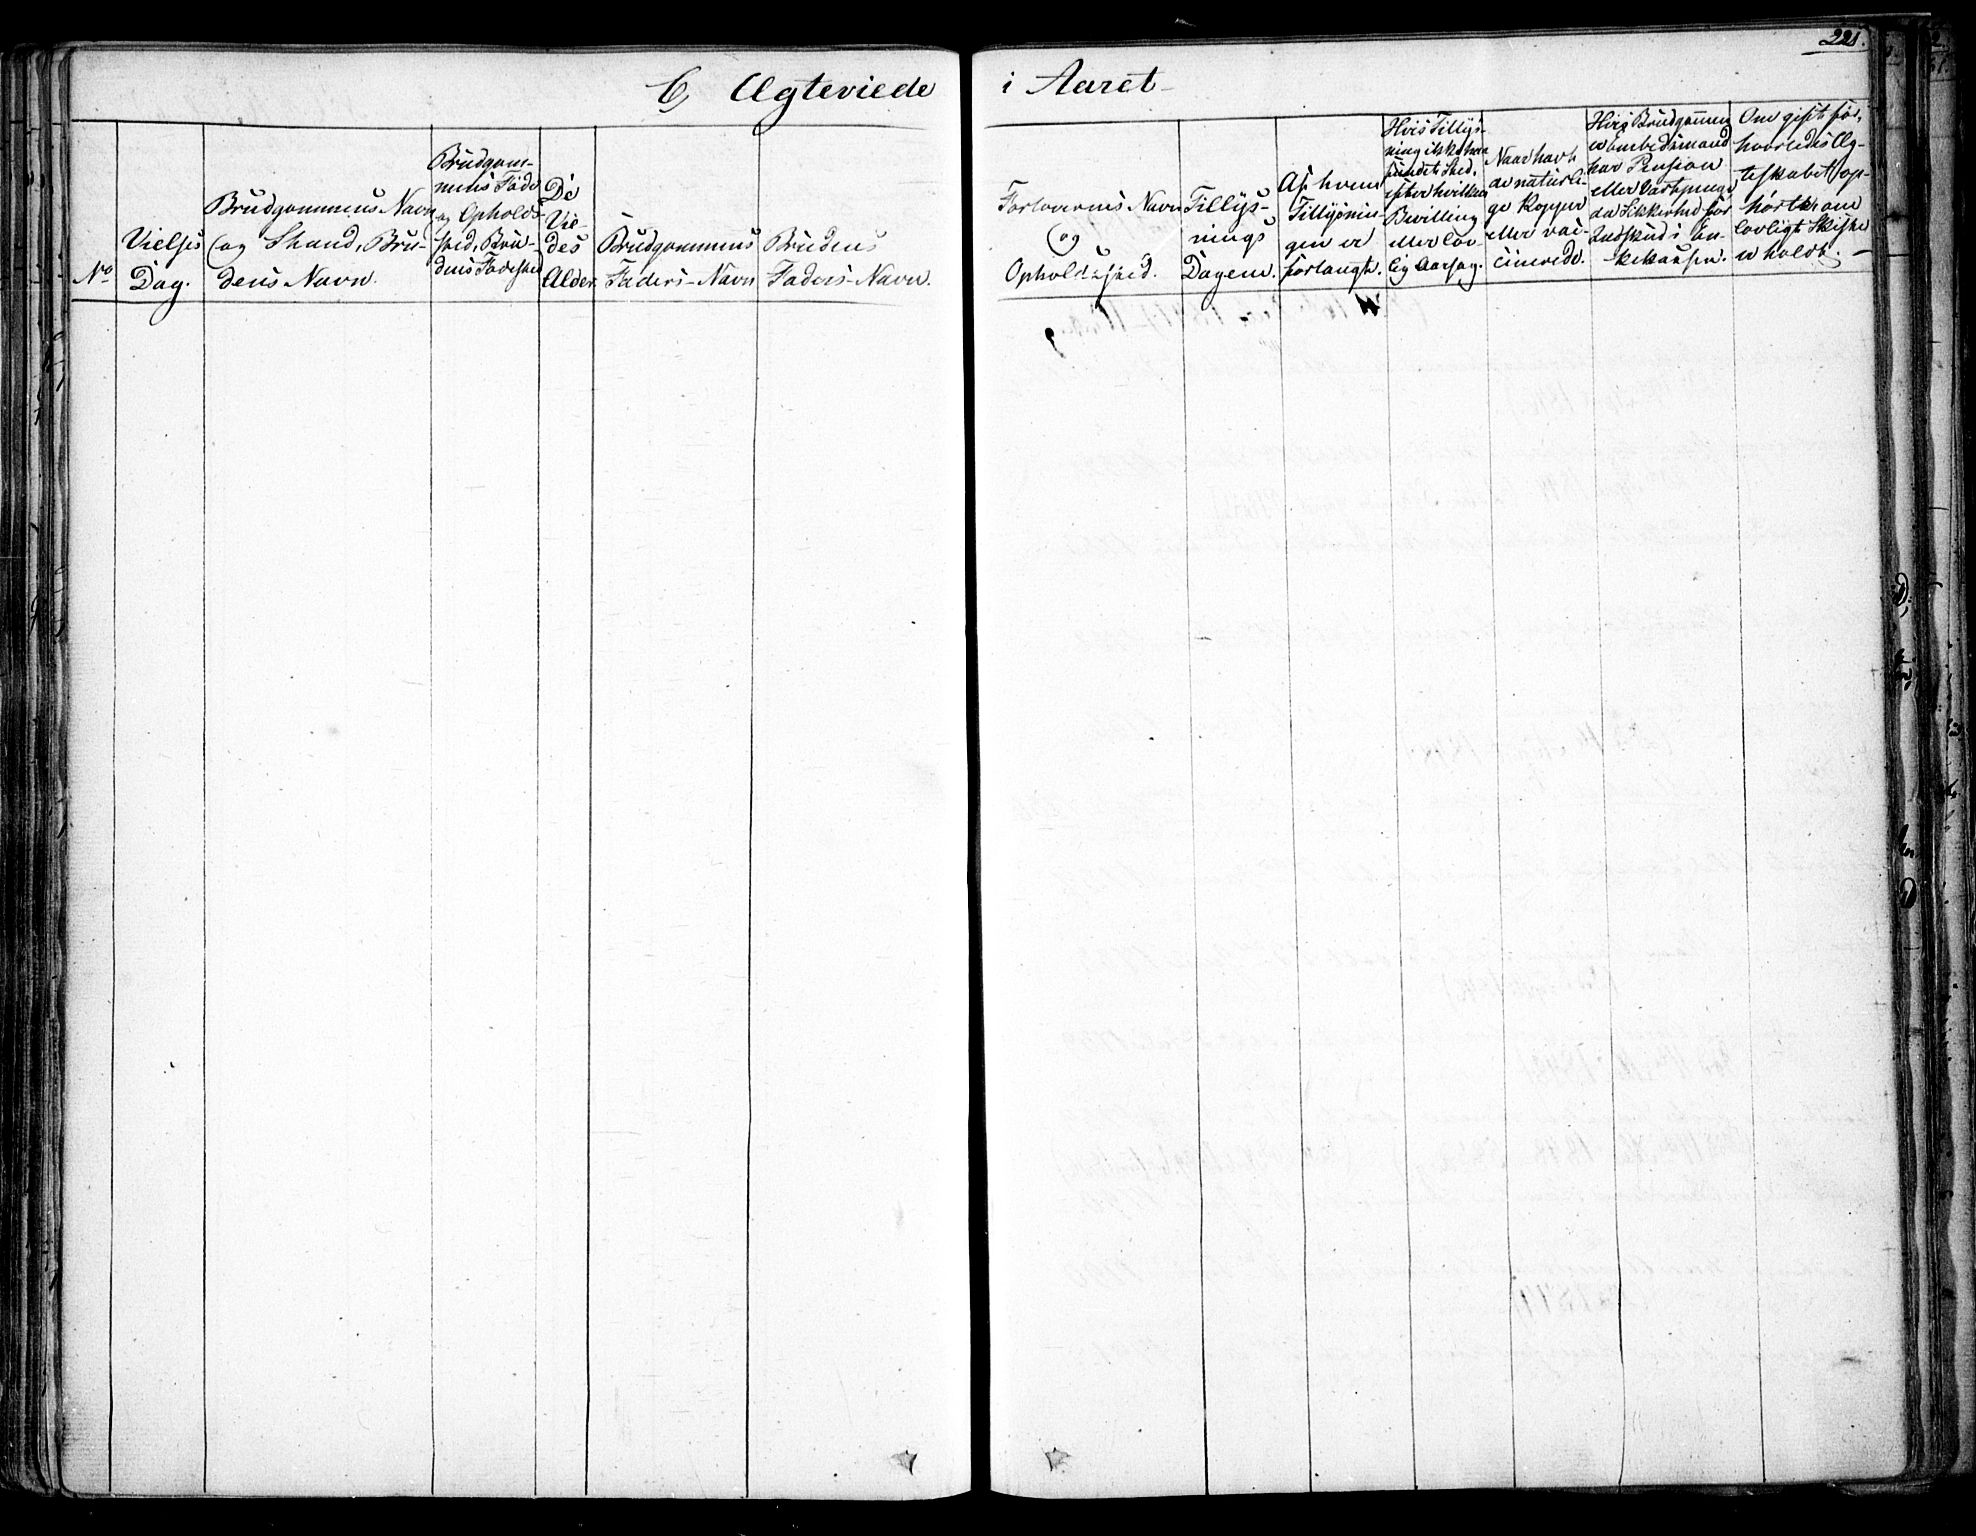 221.
C, Ægteviede i Aaret
No
Vielses
Dag.
Brudgommens Navn
og Stand, Bru-
dens Navn.
Brudgom-
mens Føde
og Opholds-
sted, Bru-
dens Fødested
De
Vie-
des
Alder.
Brudgommens
Faders-Navn
Brudens
Faders-Navn.
Forlovernes Navn
og
Opholdssted.
Tillys-
nings
Dagene.
Af hvem
Tillysnin-
gen er
forlangt.
Hvis Tillys-
ning ikke har
fundet Sted,
efter hvilken
Bevilling
eller lov-
lig Aarsag.
Naar havt
de naturli-
ge Kopper
eller vac-
cinerede.
Hvis Brudgommen
er Embedsmand
har Pension
eller Vartpenge
da Sikkerhed for
Indskud i En-
kekassen.
Om gift før,
hvorledes Æg-
teskabet op-
hørte, om
lovligt Skifte
er holdt.